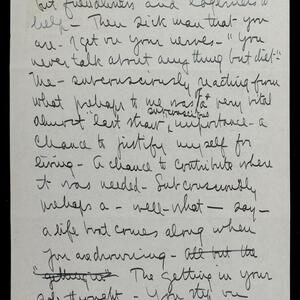 but friendliness and eagerness to
help - Then sick man that you
are - I get on your nerves - "you
never talk about anything but diet" -
Me - subconsciously reacting from
what perhaps to me was a very vital
almost "last straw" subconscious importance - a
chance to justify myself for
living - A chance to contribute where
it was needed - Subconsciously
perhaps a - well - what - say -
a life boat comes along when
you are drowning - all but the
"getting in" The getting in your
thought - You step on